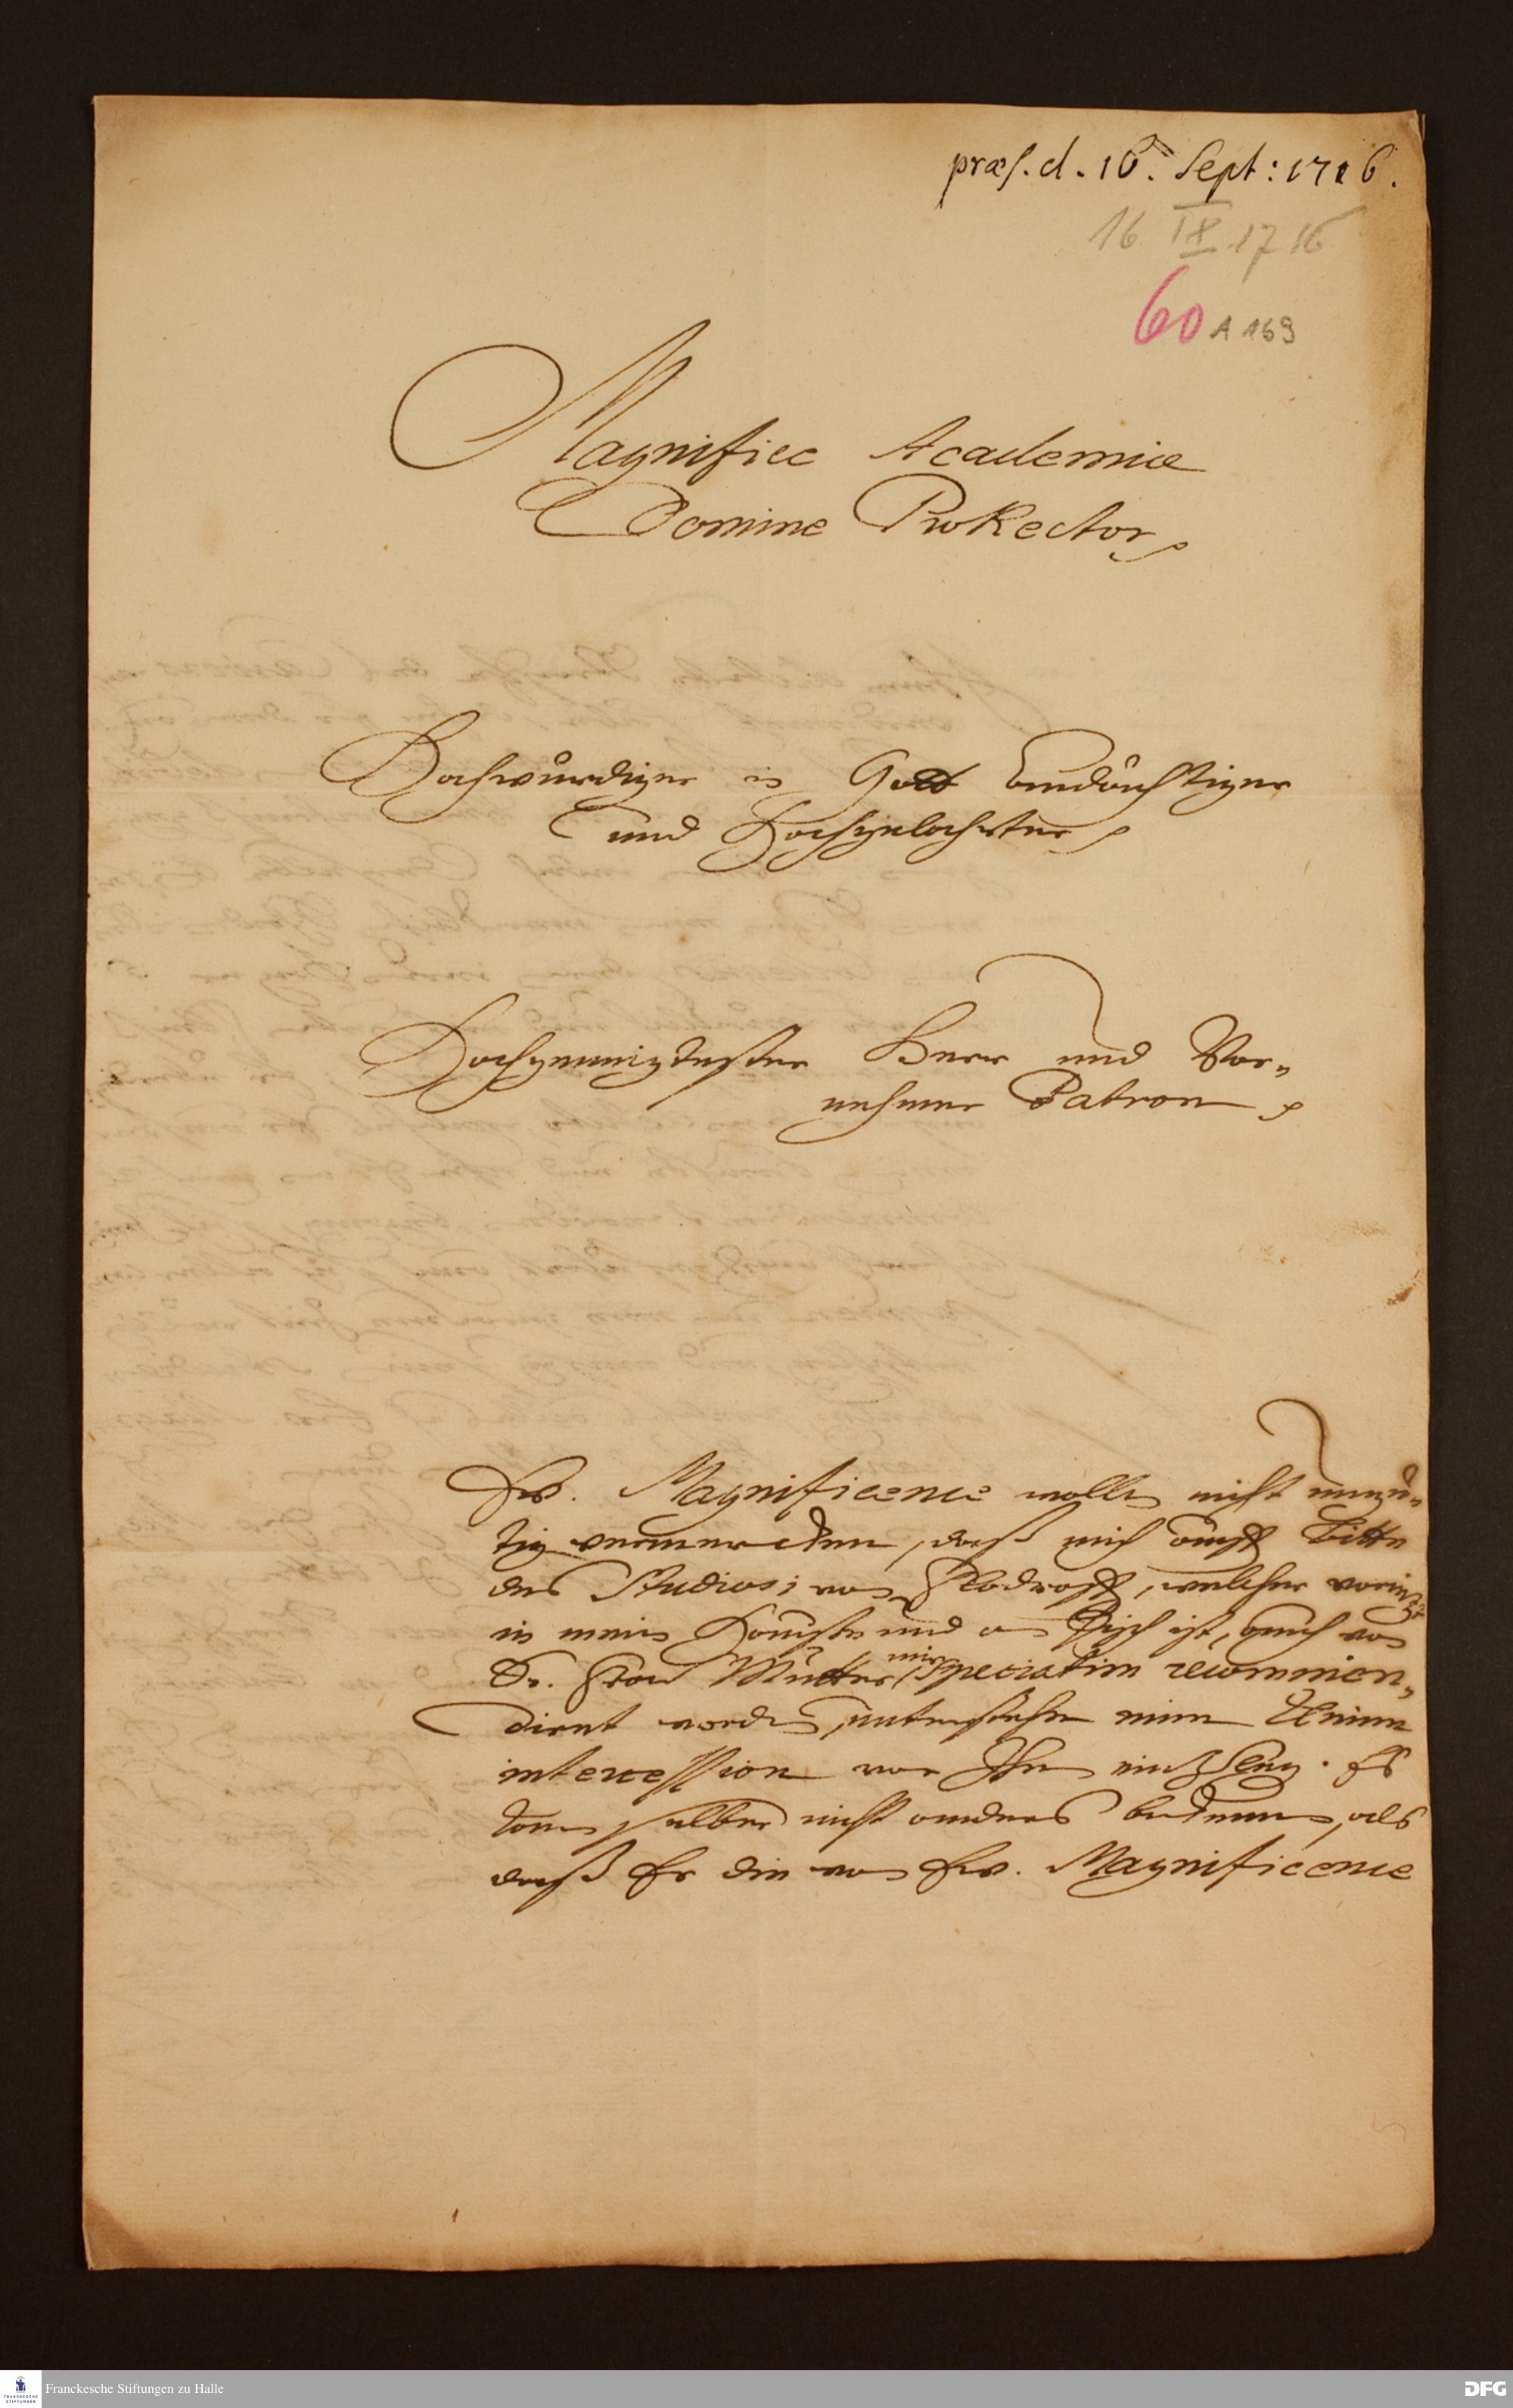 præs. d. 16. Sept: 1716.
16 IX 1716
60 A 169
Magnifice Academiæ
Domine ProRector,
Hochwürdiger in Gott Andächtiger
und Hochgelahrter,
Hochgeneigtester Herr und Vor-
nehmer Patron,
Ew. Magnificence wollen nicht ungü-
tig vermercken, daß mich auff Bitte
des Studiosi von Flodroff, welcher vorietzt
in meinem Hauße und am Tisch ist, auch von
Dr. Frau Mutter mir speciatim recommen-
diret worden, unterstehe eine kleine
intercession vor Ihn einzulegen. Es
kan selber nicht anders bekennen, als
daß Er die von Ew. Magnificence
Franckesche Stiftungen zu Halle
DFG